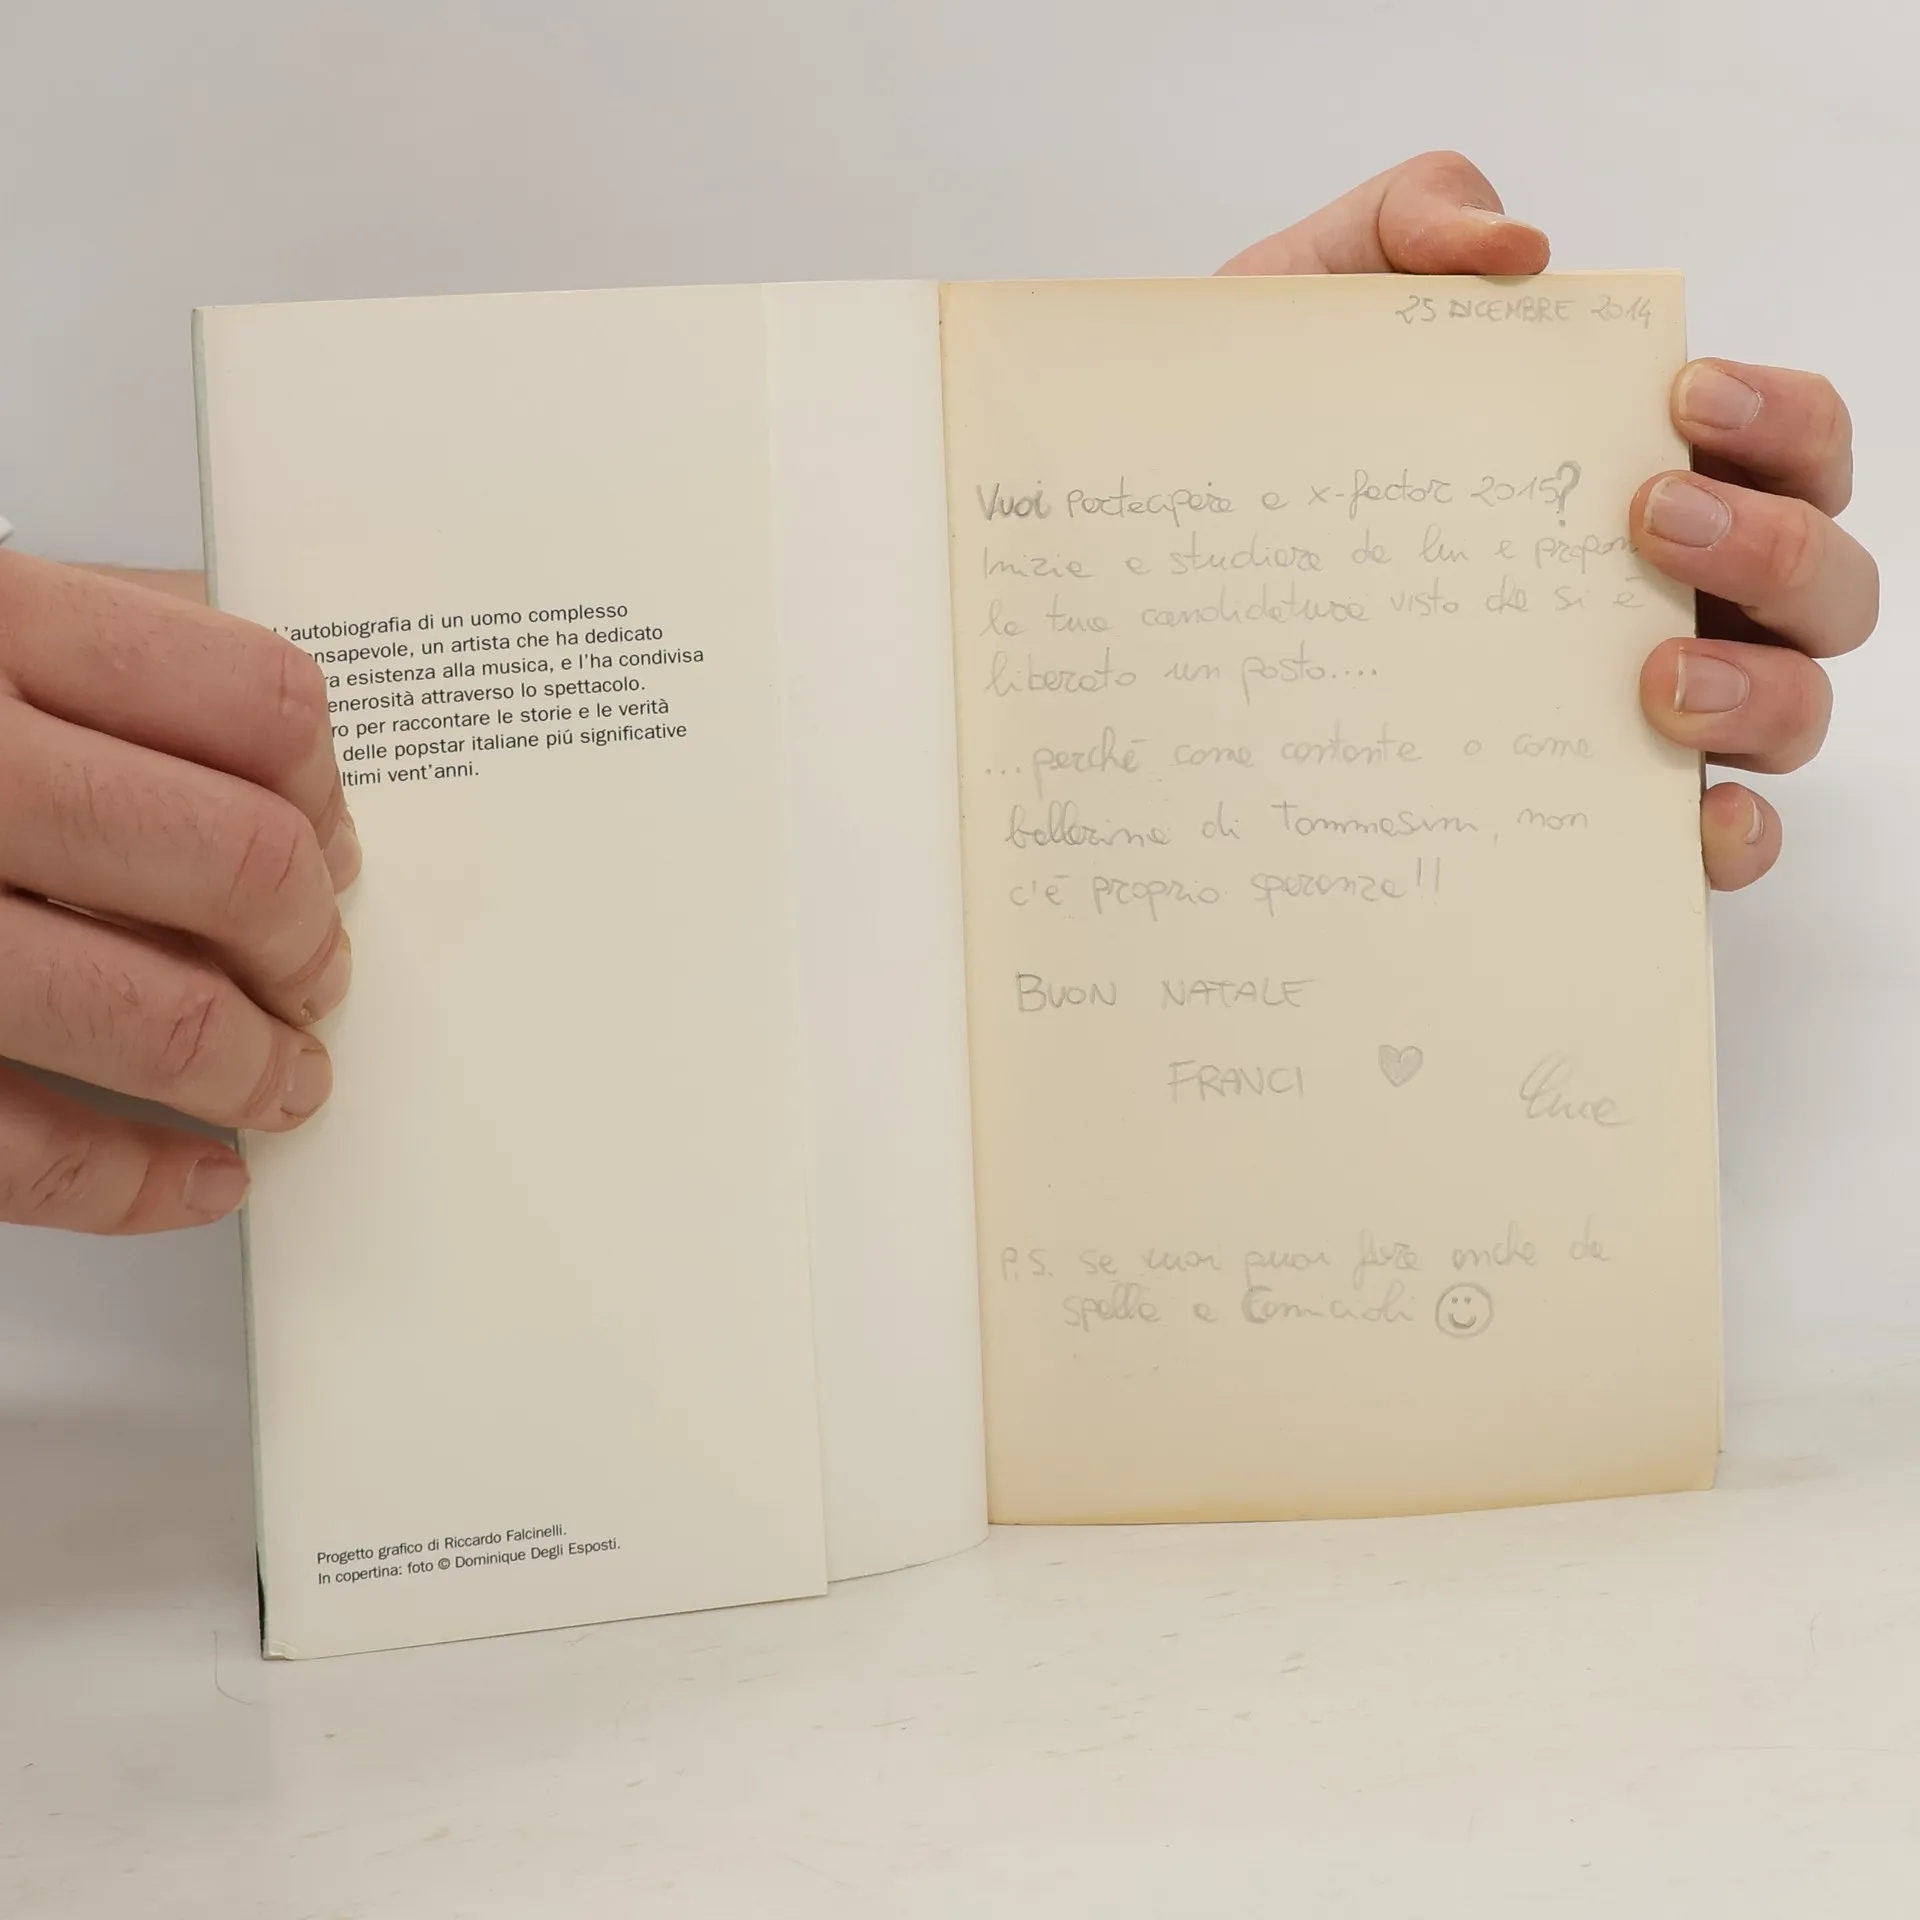 L'autobiografia di un uomo complesso
nsapevole, un artista che ha dedicato
ra esistenza alla musica, e l'ha condivisa
enerosità attraverso lo spettacolo.
ro per raccontare le storie e le verità
delle popstar italiane piú significative
ltimi vent'anni.
Progetto grafico di Riccardo Falcinelli.
In copertina: foto © Dominique Degli Esposti.
25 DICEMBRE 2014
Vuoi partecipare a x-factor 2015?
Inizia a studiare da lui e propon
la tua candidatura visto che si è
liberato un posto....
...perché come cantante o come
ballerina di Tommassini, non
c'è proprio speranza!!
BUON NATALE
FRANCI
P.S. se vuoi puoi fare anche da
spalla a